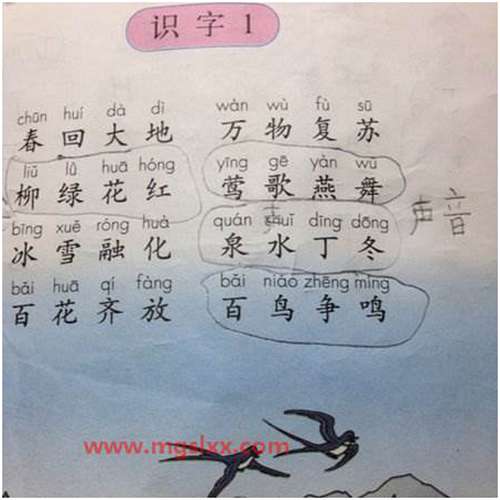 识字1
chūn huí dà dì wàn wù fù sū
春回大地 万物复苏
liǔ lǜ huā hóng yīng gē yàn wǔ
柳绿花红 莺歌燕舞
bīng xuě róng huà quán shuǐ dīng dōng
冰雪融化 泉水丁冬
声音
bǎi huā qí fàng bǎi niǎo zhēng míng
百花齐放 百鸟争鸣
www.mgslxx.com